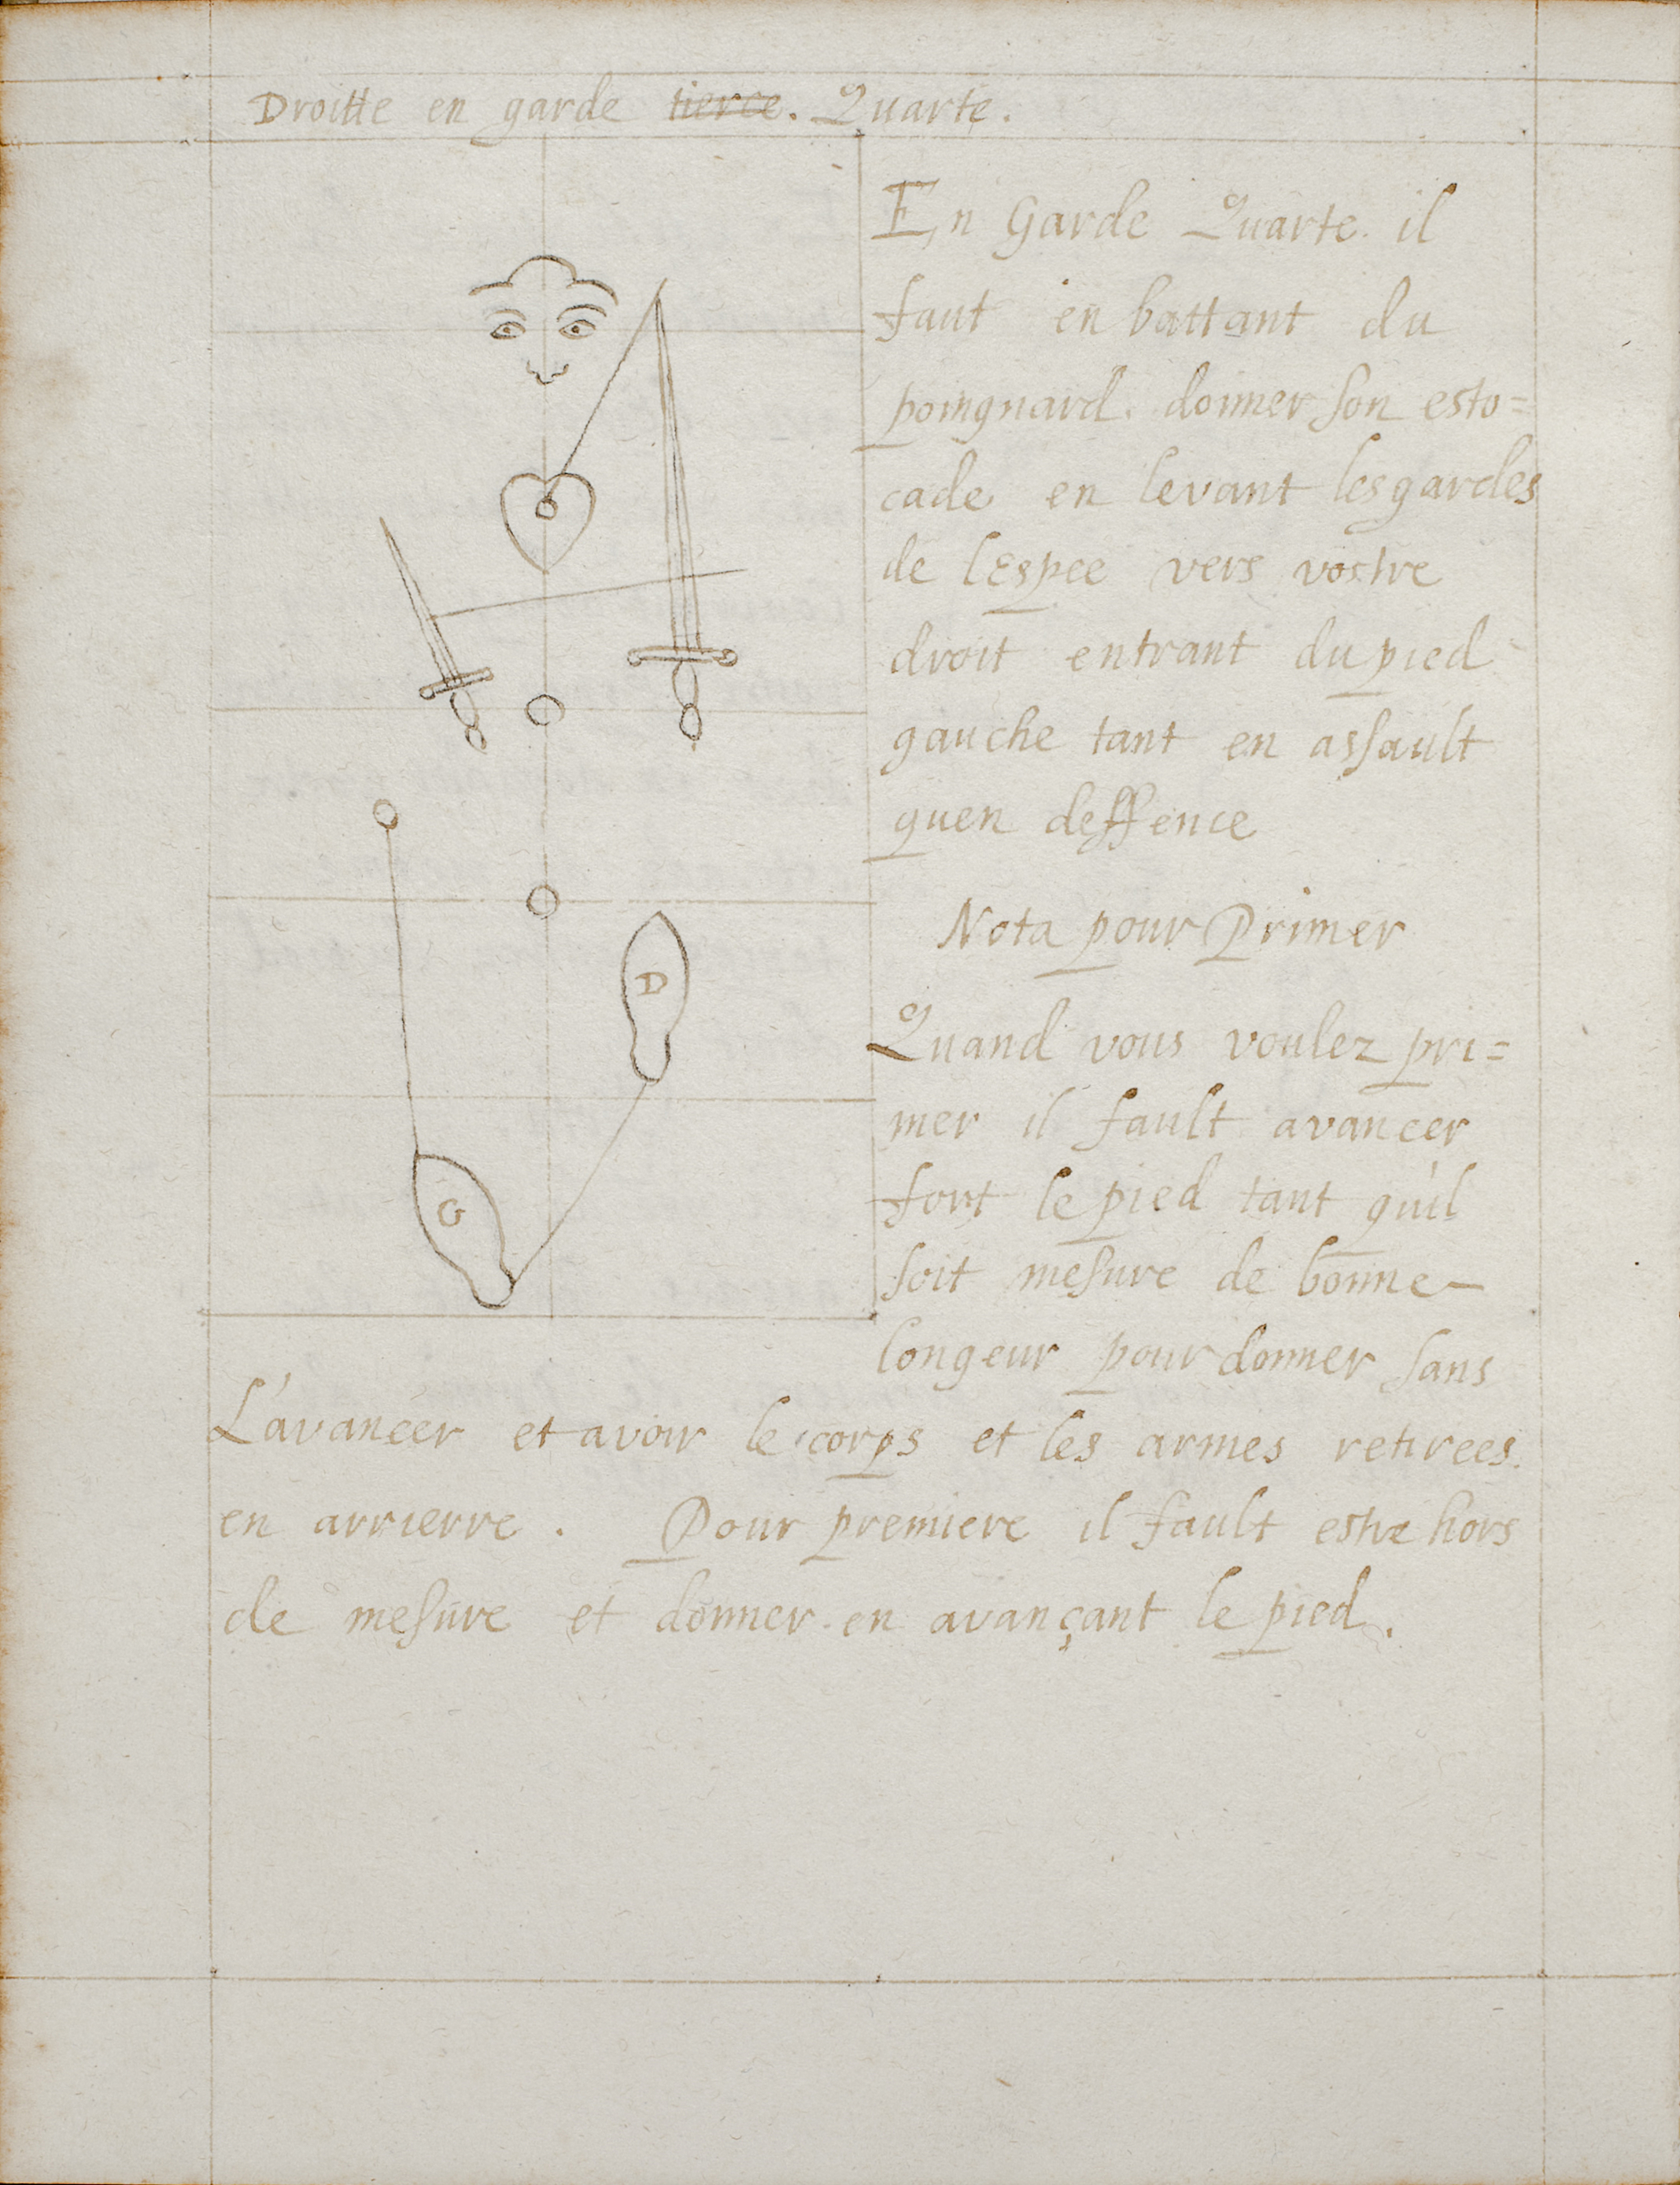 Droitte en garde tierce. Quarte.
En Garde Quarte. il
faut en battant du
poingnard. donner son esto=
cade en levant les gardes
de lEspee vers vostre
droit entrant du pied
gauche tant en assault
quen deffence
Nota pour Primer
Quand vous voulez pri=
mer il fault avancer
fort le pied tant qu'il
soit mesure de bonne
longeur pour donner sans
L'avancer et avoir le corps et les armes retirees.
en arrierre. Pour premiere il fault estre hors
de mesure et donner en avançant le pied.
D
G